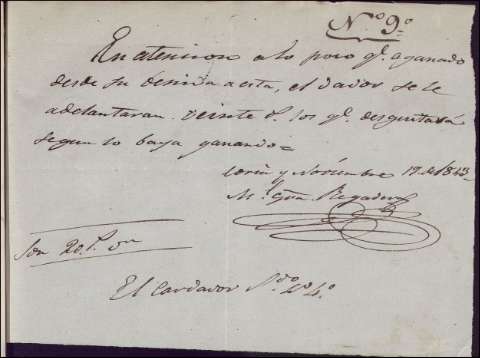 Nº 9º
En atencion a lo poco q.e a ganado
desde su benida a esta, el dador se le
adelantaran veinte r.s los q.e desquitará
segun lo baya ganando =
y Noviembre 19 de 1843
M.l
Son 20 r.s vn
El Cardador